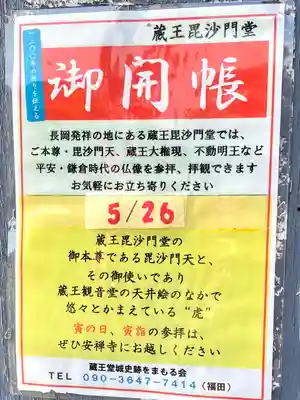 蔵王毘沙門堂
一二〇〇年の祈りを伝える
御開帳
長岡発祥の地にある蔵王毘沙門堂では、
ご本尊・毘沙門天、蔵王大権現、不動明王など
平安・鎌倉時代の仏像を参拝、拝観できます
お気軽にお立ち寄りください
5/26
蔵王毘沙門堂の
御本尊である毘沙門天と、
その御使いであり
蔵王観音堂の天井絵のなかで
悠々とかまえている“虎”
寅の日、寅詣の参拝は、
ぜひ安禅寺にお越しください
蔵王堂城史跡をまもる会
TEL 090-3647-7414（福田）